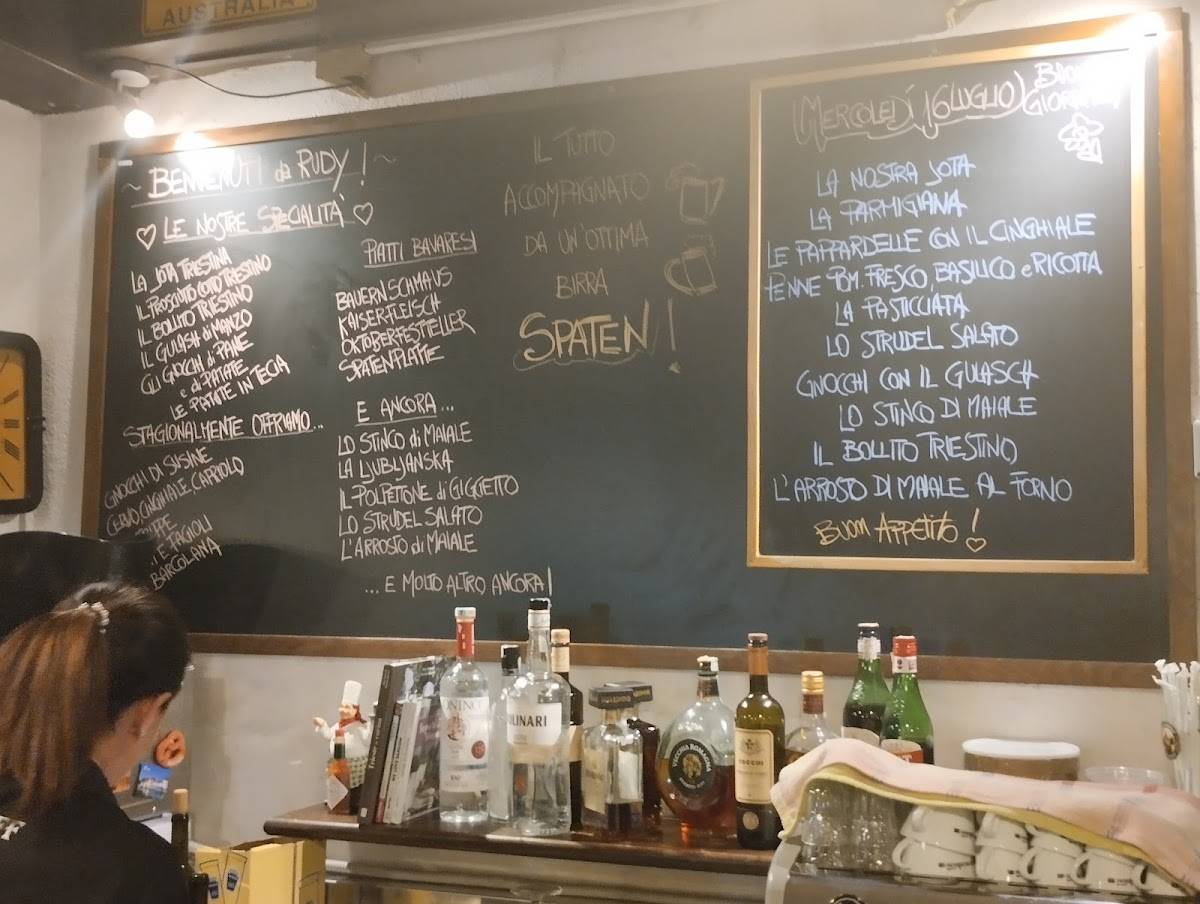 AUSTRALIA
~ BENVENUTI da RUDY! ~
LE NOSTRE SPECIALITÀ
LA JOTA TRIESTINA
IL PROSCIUTTO COTTO TRIESTINO
IL BOLLITO TRIESTINO
IL GULASH di MANZO
GLI GNOCCHI di PANE
e di PATATE
LE PATATE IN TECIA
STAGIONALMENTE OFFRIAMO...
GNOCCHI DI SUSINE
CERVO, CINGHIALE, CAPRIOLO
FAGIOLI
BARCOLANA
PIATTI BAVARESI
BAUERNSCHMAUS
KAISER-FLEISCH
OKTOBERFESTTELLER
SPATENPLATTE
E ANCORA...
LO STINCO di MAIALE
LA LJUBLJANSKA
IL POLPETTONE di GIGGETTO
LO STRUDEL SALATO
L'ARROSTO di MAIALE
... E MOLTO ALTRO ANCORA!
IL TUTTO
ACCOMPAGNATO
DA UN'OTTIMA
BIRRA
SPATEN!
MERCOLEDÌ 16 LUGLIO
LA NOSTRA JOTA
LA PARMIGIANA
LE PAPPARDELLE CON IL CINGHIALE
PENNE POM. FRESCO, BASILICO e RICOTTA
LA PASTICCIATA
LO STRUDEL SALATO
GNOCCHI CON IL GULASCH
LO STINCO DI MAIALE
IL BOLLITO TRIESTINO
L'ARROSTO DI MAIALE AL FORNO
BUON APPETITO!
VECCHIA ROMAGNA